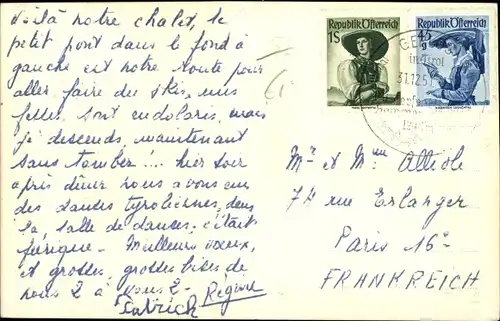 Voilà notre chalet, le
petit pont dans le fond à
gauche est notre route pour
aller faire du ski, mes
sont endoloris, mais
je descends, maintenant
sans tomber!... hier soir
après dîner nous avons eu
des danses tyroliennes, dans
la, salle de danses; c'était
féerique. Meilleurs voeux,
et grosses, grosses bises de
nous 2 à vous 2-
Patrick Régine
Republik Österreich
1S
Republik Österreich
45
g
GE
in Tirol
31.12.5
Mr et Mme
74 rue Erlanger
Paris 16e
FRANKREICH